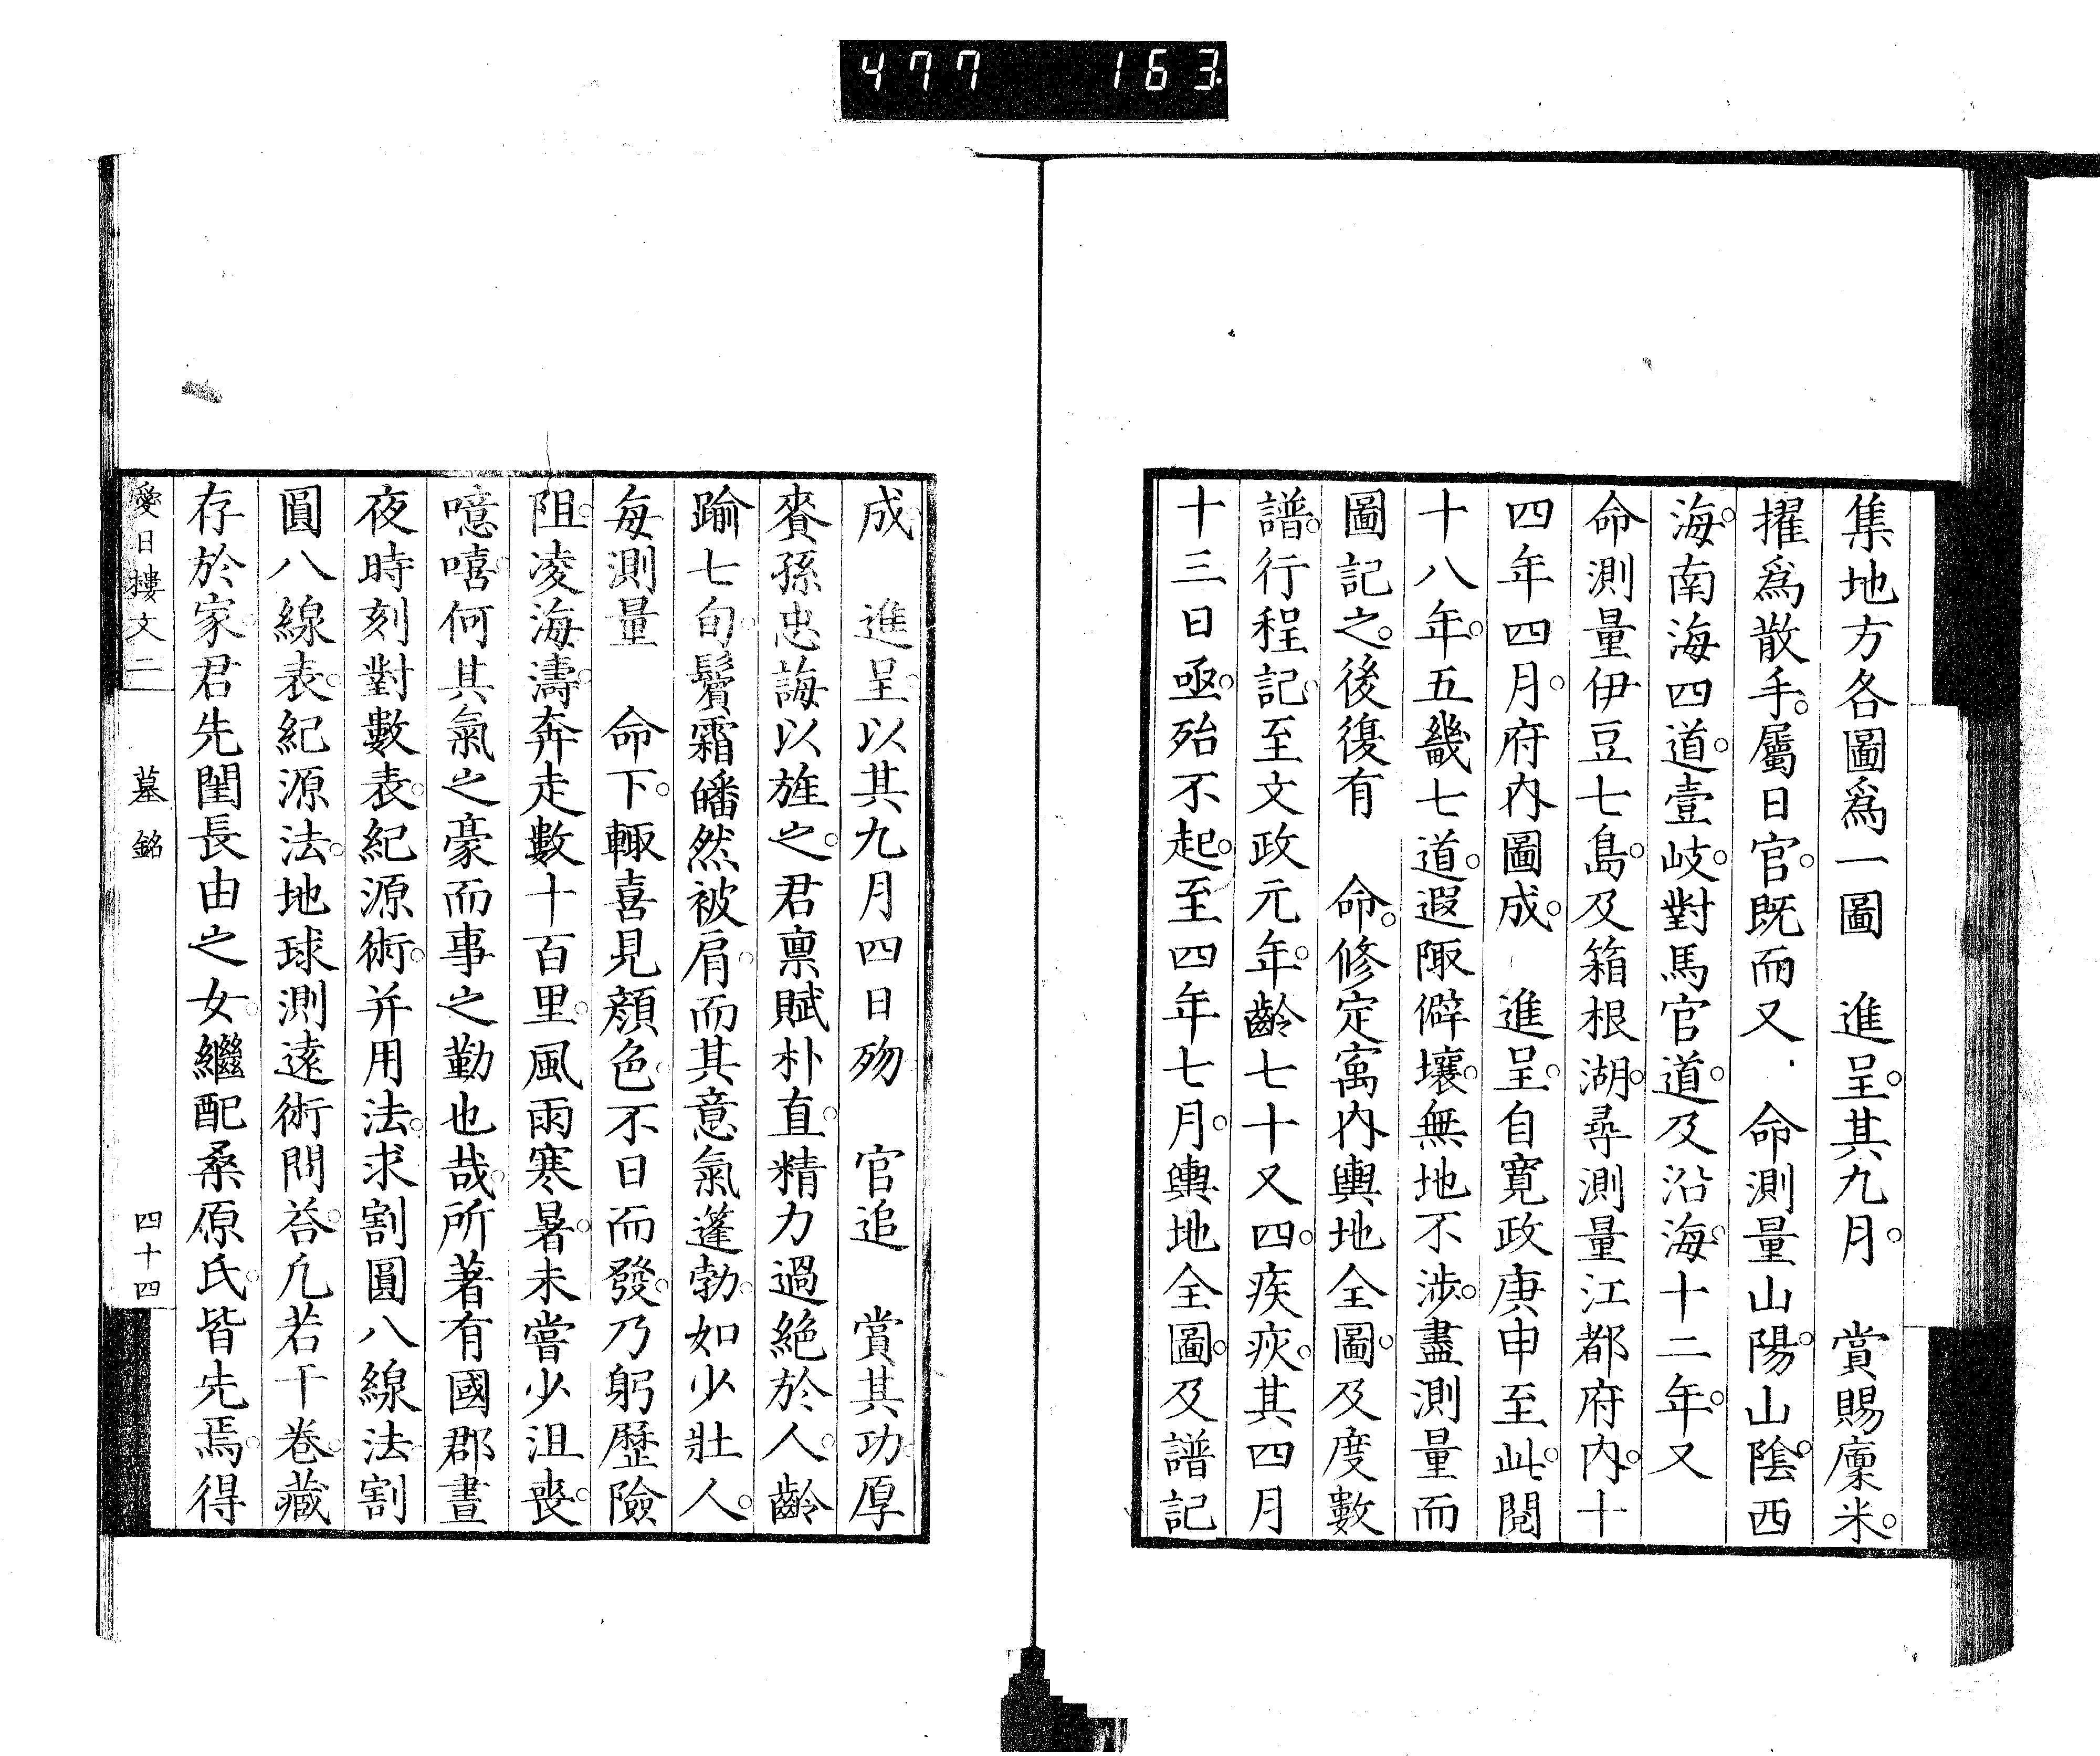 477 163
集地方各圖爲一圖　進呈。其九月。　賞賜廩米。
擢爲散手。屬日官。既而又　命測量山陽。山陰。西
海。南海四道。壹岐。對馬官道。及沿海。十二年。又
命測量伊豆七島。及箱根湖。尋測量江都府内。十
四年四月。府内圖成。　進呈。自寛政庚申至此。閲
十八年。五畿七道。遐陬僻壤。無地不渉。盡測量而
圖記之。後復有　命。修定寓内輿地全圖。及度數
譜。行程記。至文政元年。齡七十又四。疾疢。其四月
十三日。亟殆不起。至四年七月。輿地全圖。及譜記
成　進呈。以其九月四日歿　官追　賞其功。厚
賚孫忠誨以旌之。君禀賦朴直。精力過絶於人。齡
踰七旬。鬢霜皤然被肩。而其意氣蓬勃。如少壯人。
每測量　命下。輙喜見顏色。不日而發。乃躬歴險
阻。凌海濤。奔走數十百里。風雨寒暑。未嘗少沮喪。
噫嘻。何其氣之豪而事之勤也哉。所著有國郡晝
夜時刻對數表。紀源術。并用法。求割圓八線法割
圓八線表。紀源法。地球測遠術問答。凢若干卷。藏
存於家。君先閨長由之女。繼配桑原氏。皆先焉。得
愛日樓文二　墓銘　四十四